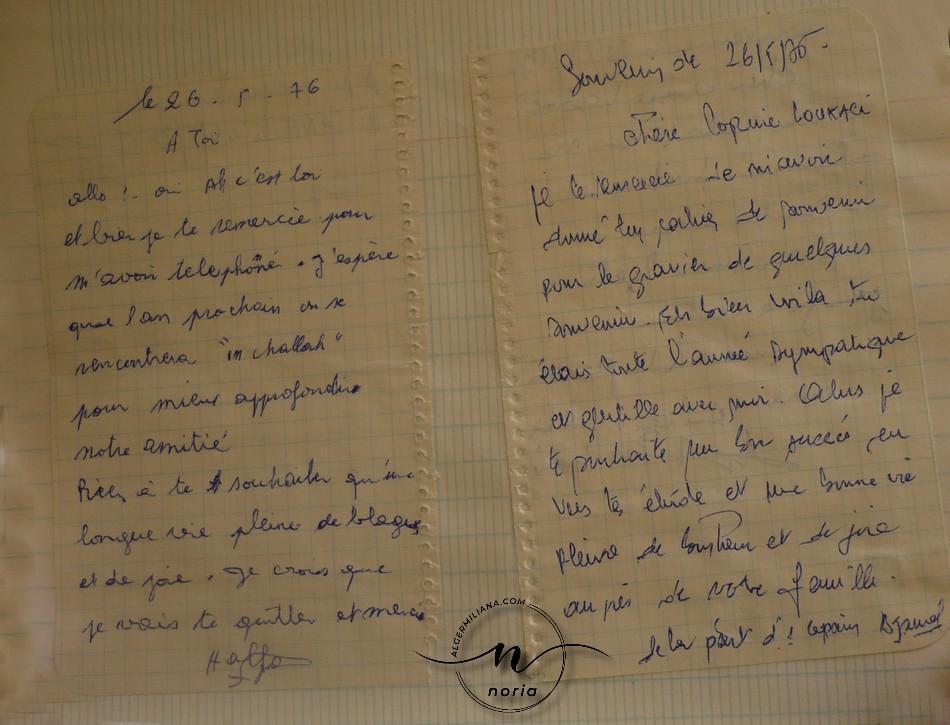 le 26 - 5 - 76
A Toi
allo ! - oui Ah c'est toi
et bien je te remercie pour
m'avoir telephoné. J'espère
que l'an prochain on se
rencontrera "in challah"
pour mieux approfondir
notre amitié
Rien à te souhaiter qu'une
longue vie pleine de blagues
et de joie. Je crois que
je vais te quitter et merci
Souvenir de 26/5/76-
chère Copine LOUKACI
je te remercie de m'avoir
donné ton cahier de souvenir
pour le gravier de quelques
souvenir. Eh bien voila tu
étais toute l'année Sympatique
et gentille avec moi. Alors je
te souhaite un bon succés en
vers tes étude et une bonne vie
pleine de bonheur et de joie
au près de votre famille.
de la part d' : copain Djamel
ALGERMILIANA.COM
n
noria